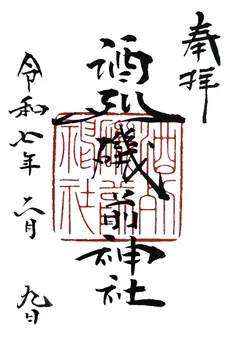 奉拝
酒列
磯前神社
令和七年 六月 九日
酒列
磯前
神社